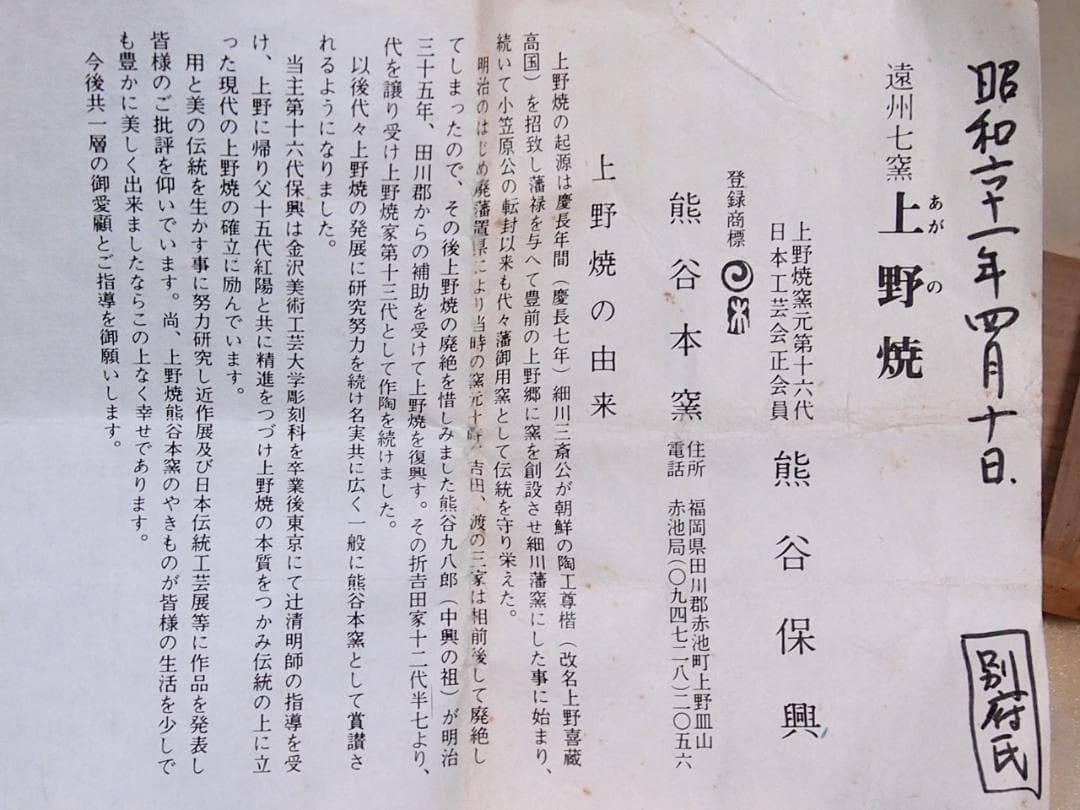 昭和六十一年四月十日.
別府氏
遠州七窯 上野焼
あがの
上野焼窯元第十六代
日本工芸会正会員
熊谷保興
登録商標
熊谷本窯
住所 福岡県田川郡赤池町上野皿山
電話 赤池局(〇九四七二八)二〇五六
上野焼の由来
上野焼の起源は慶長年間(慶長七年)細川三斎公が朝鮮の陶工尊楷(改名上野喜蔵
高国)を招致し藩禄を与へて豊前の上野郷に窯を創設させ細川藩窯にした事に始まり、
続いて小笠原公の転封以来も代々藩御用窯として伝統を守り栄えた。
明治のはじめ廃藩置県により当時の窯元十時、吉田、渡の三家は相前後して廃絶し
てしまったので、その後上野焼の廃絶を惜しみました熊谷九八郎(中興の祖)が明治
三十五年、田川郡からの補助を受けて上野焼を復興す。その折吉田家十二代半七より、
代を譲り受け上野焼家第十三代として作陶を続けました。
以後代々上野焼の発展に研究努力を続け名実共に広く一般に熊谷本窯として賞讃さ
れるようになりました。
当主第十六代保興は金沢美術工芸大学彫刻科を卒業後東京にて辻清明師の指導を受
け、上野に帰り父十五代紅陽と共に精進をつづけ上野焼の本質をつかみ伝統の上に立
った現代の上野焼の確立に励んでいます。
用と美の伝統を生かす事に努力研究し近作展及び日本伝統工芸展等に作品を発表し
皆様のご批評を仰いでいます。尚、上野焼熊谷本窯のやきものが皆様の生活を少しで
も豊かに美しく出来ましたならこの上なく幸せであります。
今後共一層の御愛顧とご指導を御願いします。